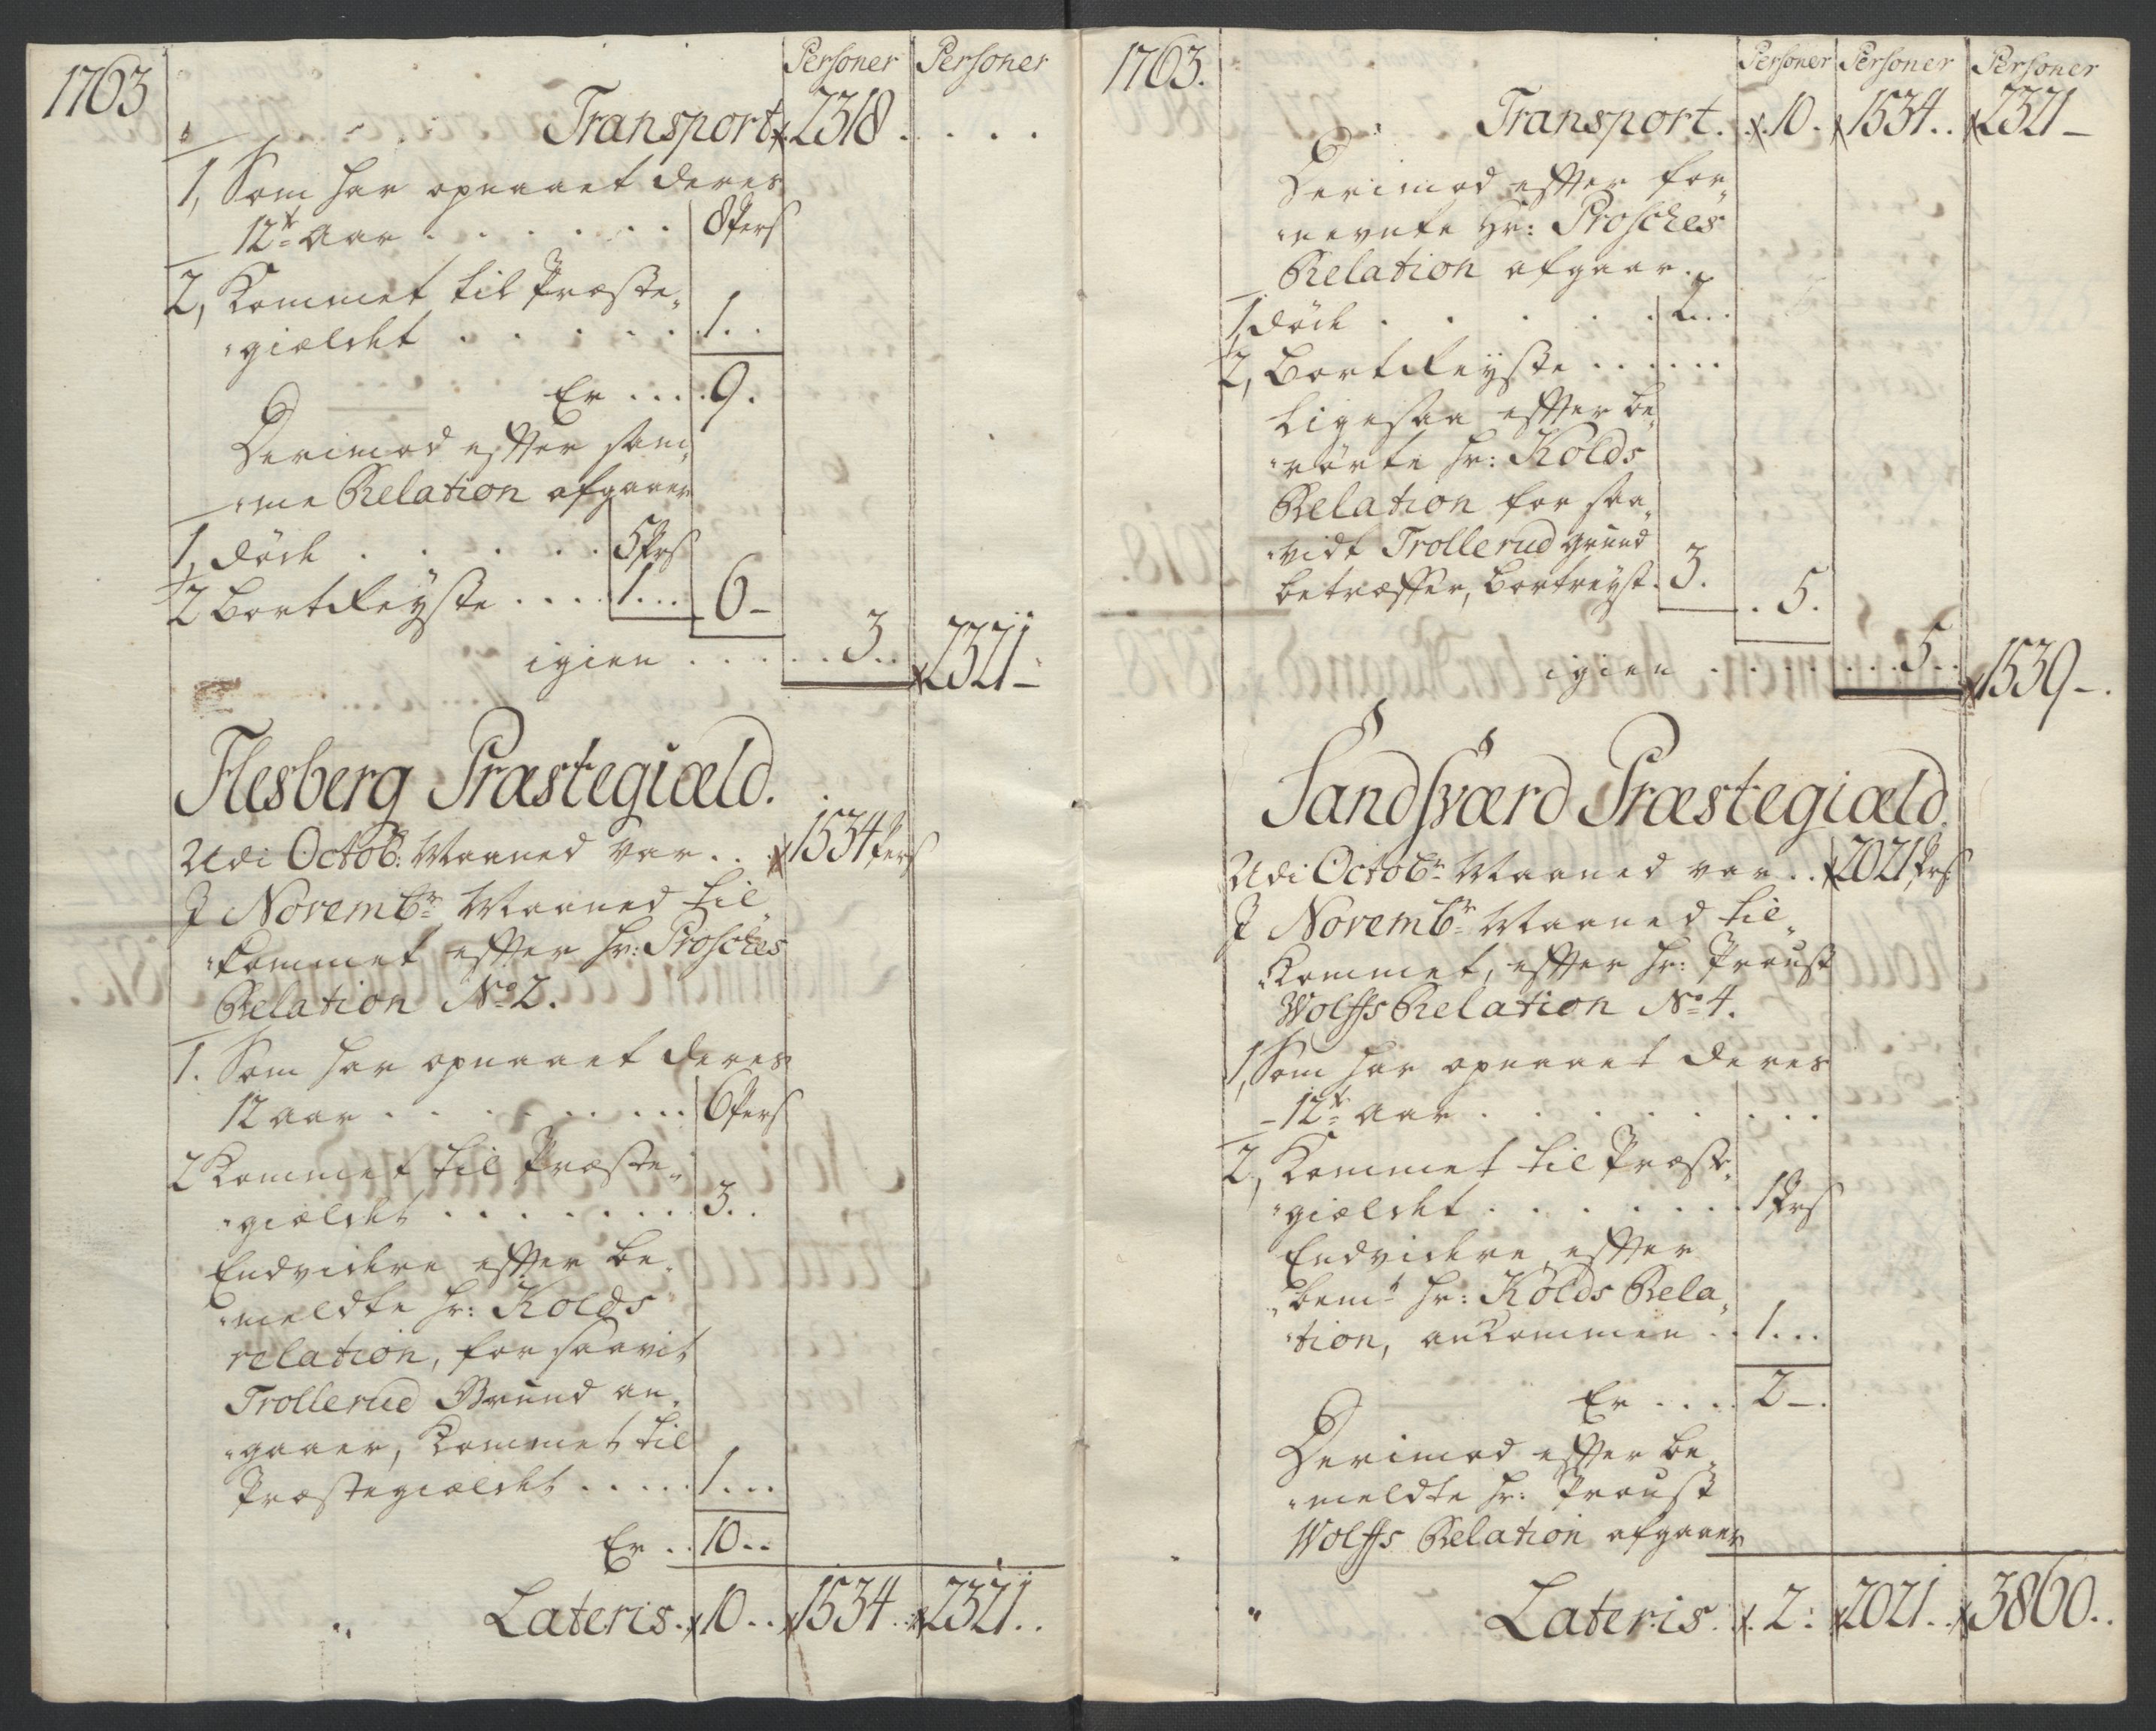 1763
Personer Personer
Transport x 2318 . . . .
1, Som har opnaaet deres
12te Aar . . . . . . 8 Pers
2, Kommet til Præste„
„gieldet . . . . . . 1 . .
Er . . . . 9 .
Derimod efter sam„
„me Relation afgaaer
1, døde . . . . . 5 Prs
2 Bortreyste . . . . 1 . . . 6 –
igien . . . . . . 3 . . x 2321 –
Flesberg Præstegiæld.
Udi Octob: Maaned var . . x 1534 Pers
I Novembr Maaned til
„kommet efter Hr: Prosches
Relation No 2.
1. Som har opnaaet deres
12 aar . . . . . . . . . 6 Pers
2 Kommet til Præste„
„gieldet . . . . . . . . 3 . .
Endvidere efter be„
„meldte Hr: Kolds
relation, for saavit
Trollerud Grund an„
„gaaer, Kommet til
Præstegieldet . . . . . 1 . . .
Er . . 10 . .
Lateris. x 10 . . x 1534 . . x 2321 . .
1763.
Personer Personer Personer
Transport. x 10 . x 1534 . . x 2321 –
Derimod efter for„
„nevnte Hr: Prosches
Relation afgaar.
1, døde . . . . . . 2 . . .
2, Bortreyste . . . . . .
Ligesaa efter be„
„rørte Hr: Kolds
Relation for saa„
„vidt Trollerud grund
betræffer, bortreyst . 3 . . 5 .
igien . . . . . . . 5 . . x 1539 – .
Sandsværd Præstegiæld.
Udi Octobr Maaned var . . x 2021 Prs
I Novembr Maaned til„
„Kommet, efter Hr: Proust
Wolffs Relation No 4.
1, Som har opnaaet deres
– 12te Aar . . . . . . . . .
2, Kommet til Præste„
„gieldet . . . . . . . 1 Prs
Endvidere efter
bemte Hr: Kolds Rela„
„tion, ankommen . . 1 . . .
Er . . . . 2 – .
Derimod efter be„
„meldte Hr: Proust
Wolffs Relation afgaaer
Lateris. x 2 : x 2021 . . x 3860 . .